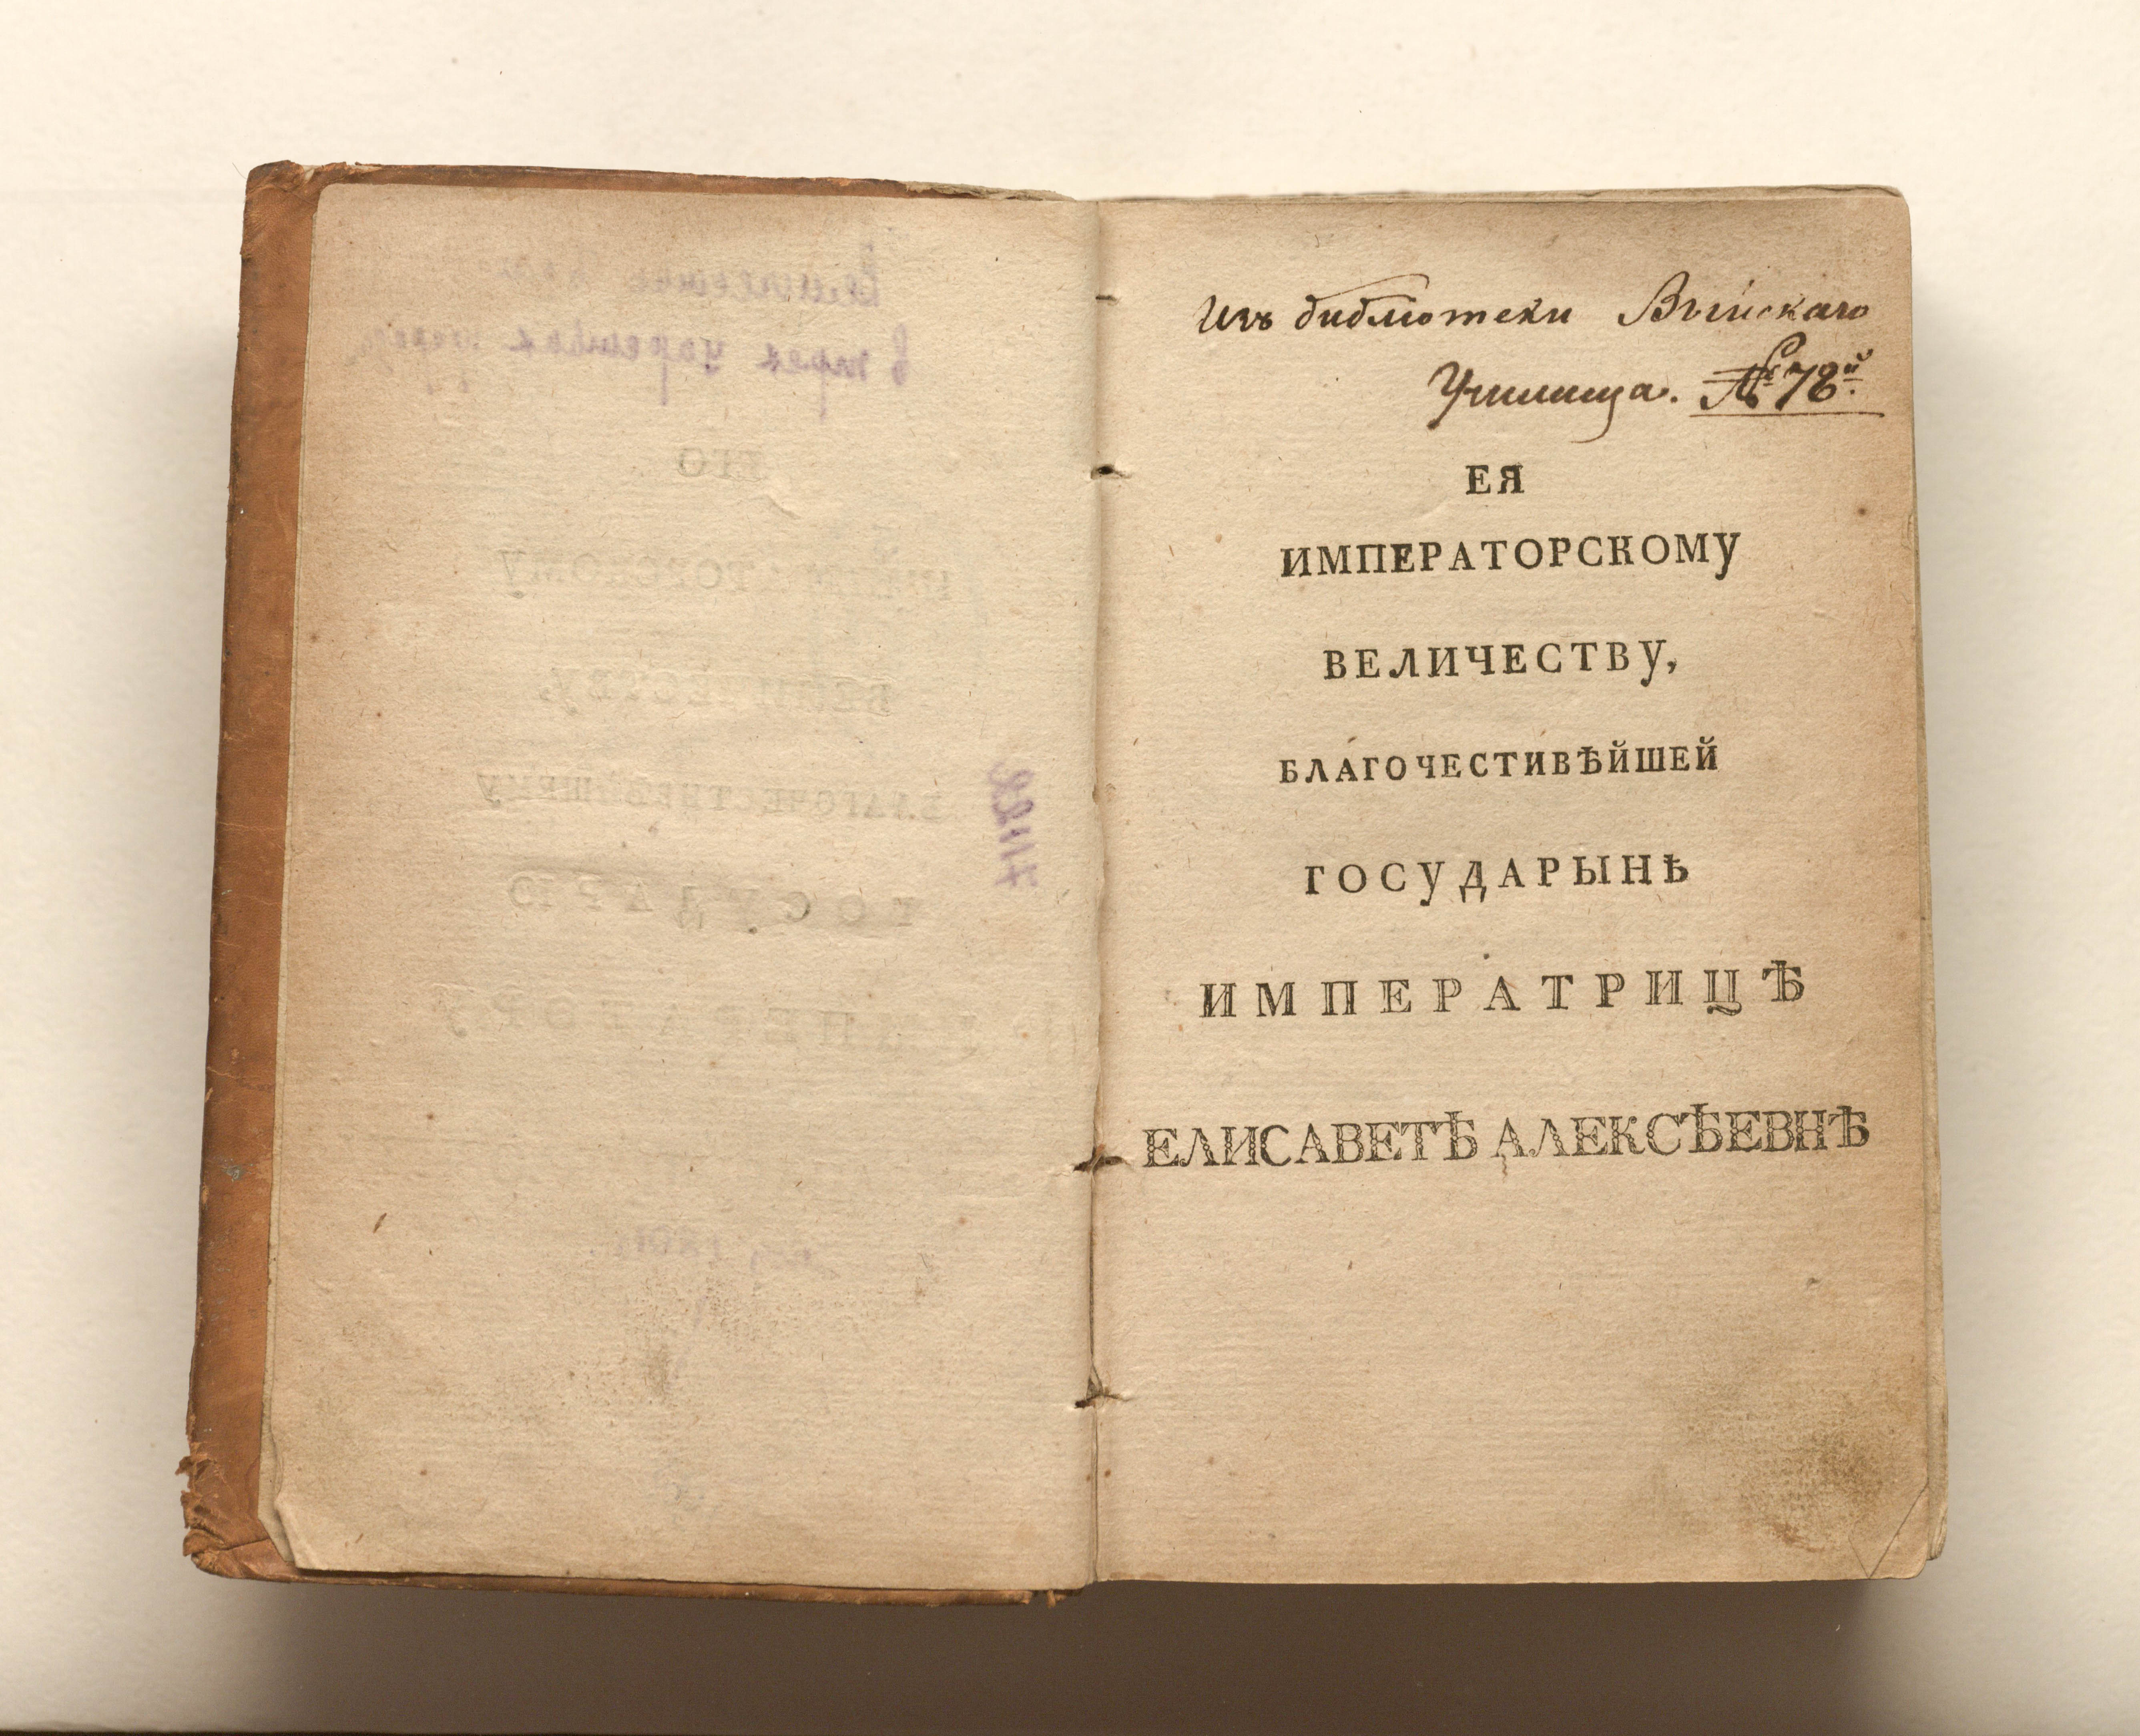 Изъ библіотеки Выйскаго
Училища. № 78й
ЕЯ
ИМПЕРАТОРСКОМУ
ВЕЛИЧЕСТВУ,
БЛАГОЧЕСТИВѢЙШЕЙ
ГОСУДАРЫНѢ
ИМПЕРАТРИЦѢ
ЕЛИСАВЕТѢ АЛЕКСѢЕВНѢ